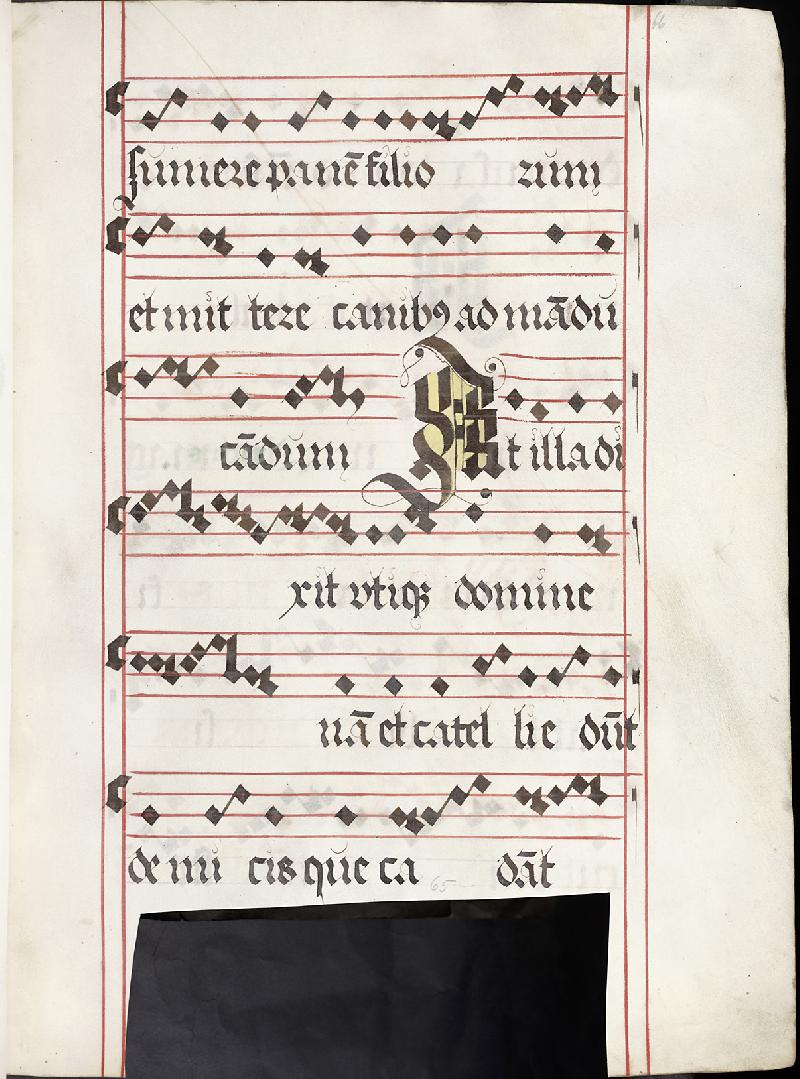 66
sumere panē filio rum
et mit tere canibꝰ ad mādu
cādum At illa di
xit vtiqꝫ domine
nā et catel li e dūt
de mi cis que ca dāt
65